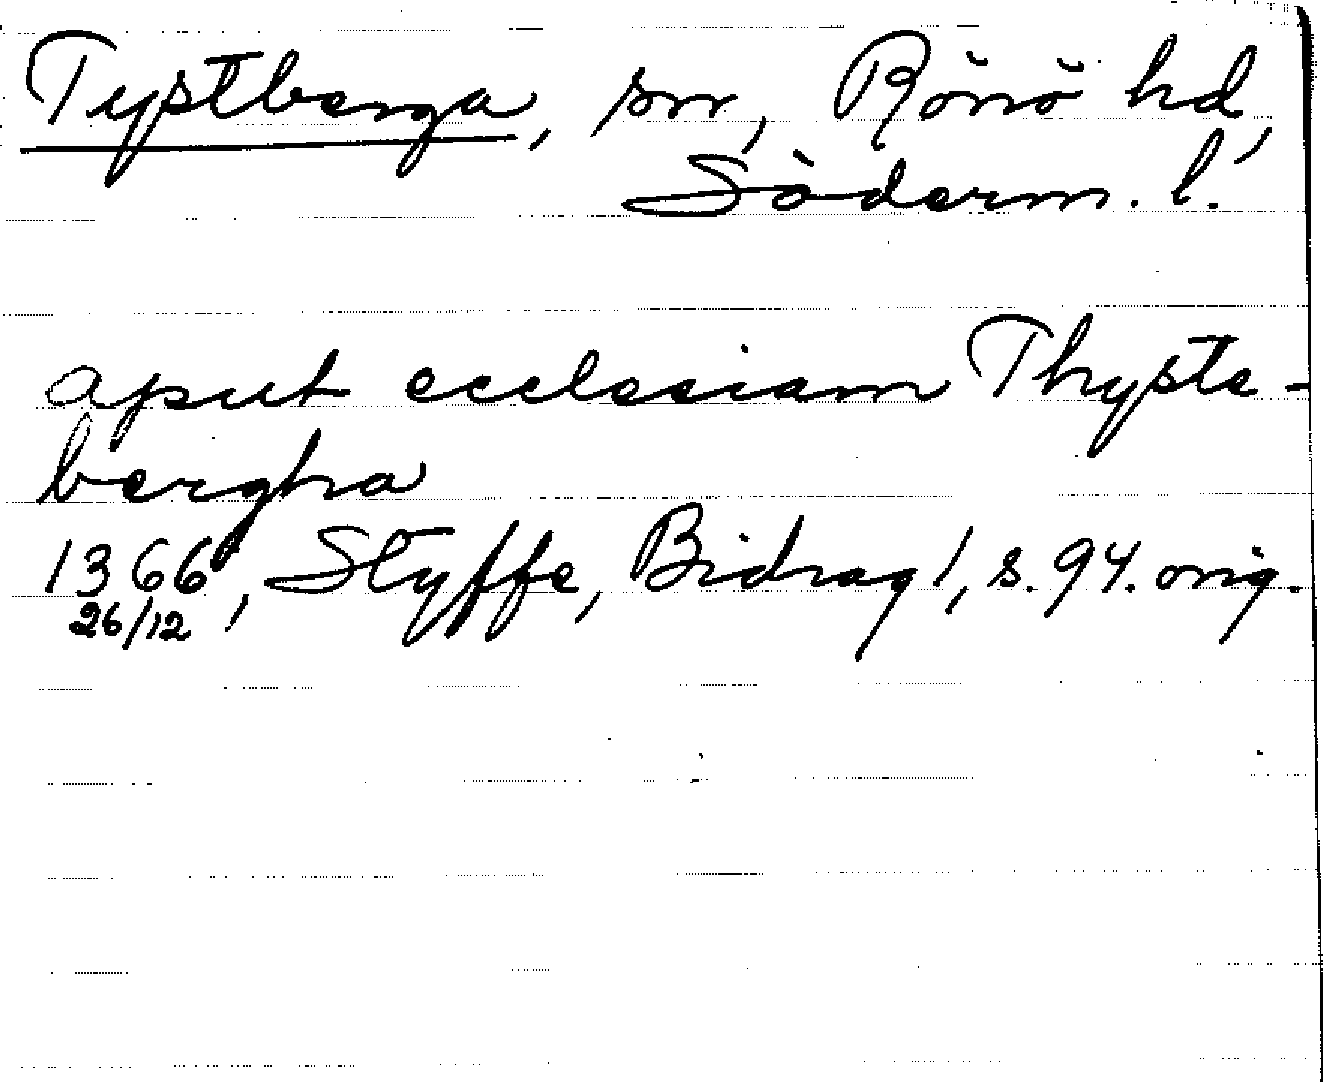 Tystberga, sn, Rönö hd,
Söderm. l.
aput ecclesiam Thysta-
bergha
1366, Styffe, Bidrag 1, s. 94. orig.
26/12